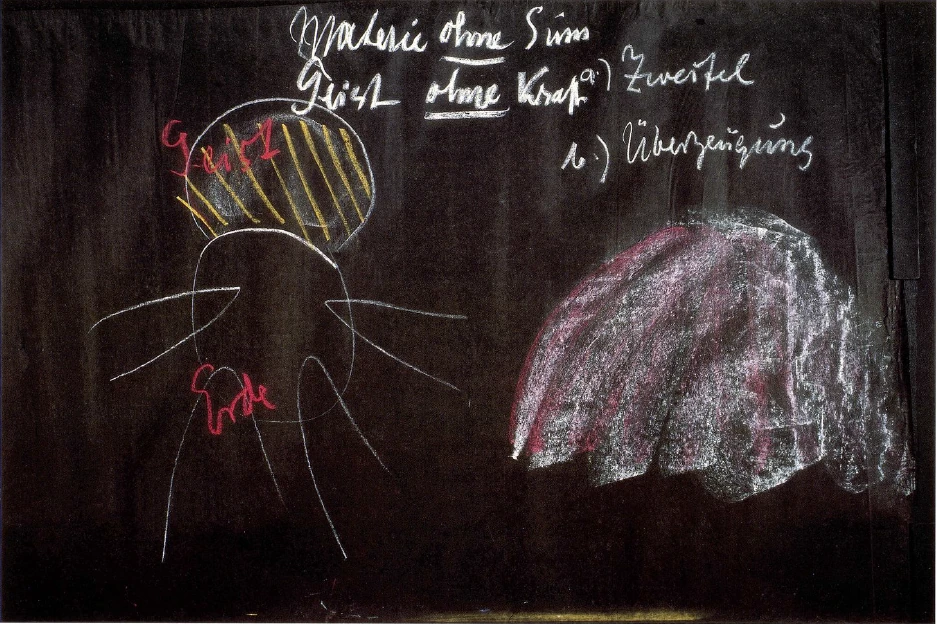 Materie ohne Sinn
Geist ohne Kraft
a.) Zweifel
b.) Überzeugung
Geist
Erde